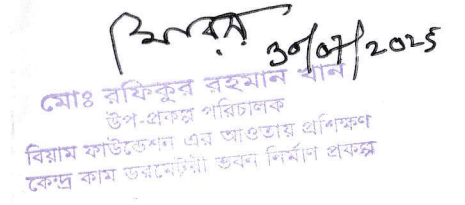 30/07/2025
মোঃ রফিকুর রহমান খান
উপ-প্রকল্প পরিচালক
বিয়াম ফাউন্ডেশন এর আওতায় প্রশিক্ষণ
কেন্দ্র কাম ডরমেটরী ভবন নির্মাণ প্রকল্প